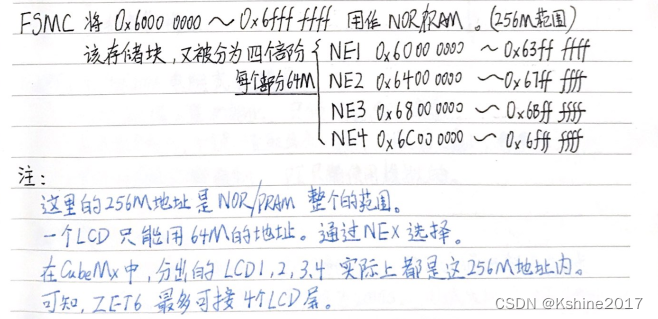 FSMC 将 0x6000 0000 ~ 0x6fff ffff 用作 NOR/PRAM。(256M范围)
该存储块,又被分为四个部分 { NE1 0x6000 0000 ~ 0x63ff ffff
每个部分64M NE2 0x6400 0000 ~ 0x67ff ffff
NE3 0x6800 0000 ~ 0x6Bff ffff
NE4 0x6C00 0000 ~ 0x6fff ffff
注:
这里的256M地址是 NOR/PRAM 整个的范围。
一个LCD 只能用 64M的地址。通过NEX 选择。
在CubeMx中,分出的 LCD1,2,3,4 实际上都是这256M地址内。
可知,ZET6 最多可接 4个LCD屏。
CSDN @Kshine2017